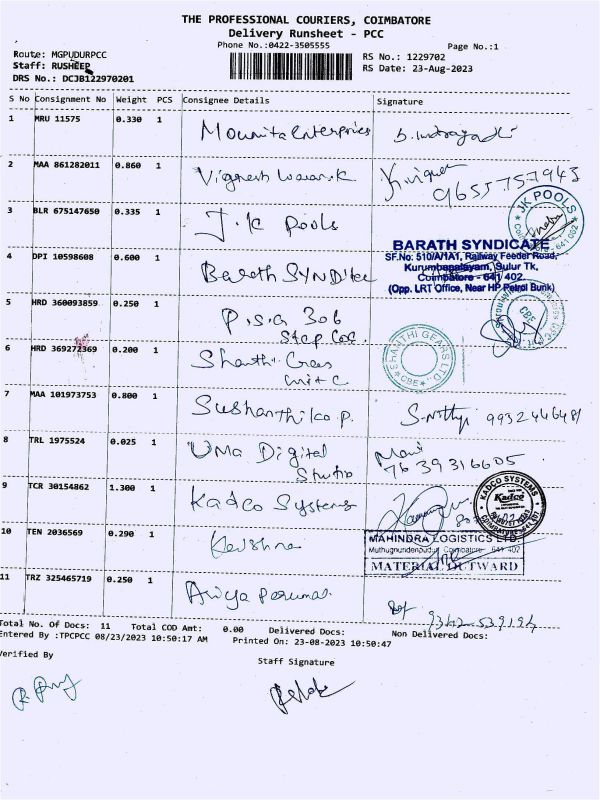 THE PROFESSIONAL COURIERS, COIMBATORE
Delivery Runsheet - PCC
Phone No.:0422-3505555
Page No.:1
Route: MGPUDURPCC
Staff: RUSHEEP
DRS No.: DCJB122970201
RS No.: 1229702
RS Date: 23-Aug-2023
S No Consignment No Weight PCS Consignee Details Signature
1 MRU 11575 0.330 1 Mounita Enterprises
2 MAA 861282011 0.860 1 Vignesh 9655757943
3 BLR 675147650 0.335 1 J.K Pools
JK POOLS
641 002
4 DPI 10598608 0.600 1 Barath
BARATH SYNDICATE
SF.No: 510/A/1A1, Railway Feeder Road,
Kurumbapalayam, Sulur Tk,
Coimbatore - 641 402
(Opp. LRT Office, Near HP Petrol Bunk)
5 HRD 360093859 0.250 1 P.S.G
CBE
6 HRD 369272369 0.200 1 Shanthi Gears
Unit C
SHANTHI GEARS LTD.
CBE
7 MAA 101973753 0.800 1
8 TRL 1975524 0.025 1 Uma Digital
Studio
7639316605
9 TCR 30154862 1.300 1 Kadco Systems
KADCO SYSTEMS
Kadco
10 TEN 2036569 0.290 1 Krishna
MAHINDRA LOGISTICS LTD.
Muthugoundenpudur, Coimbatore - 641 402
MATERIAL OUTWARD
11 TRZ 325465719 0.250 1
Total No. Of Docs: 11 Total COD Amt: 0.00 Delivered Docs: Non Delivered Docs:
Entered By :TPCPCC 08/23/2023 10:50:17 AM Printed On: 23-08-2023 10:50:47
Verified By
Staff Signature